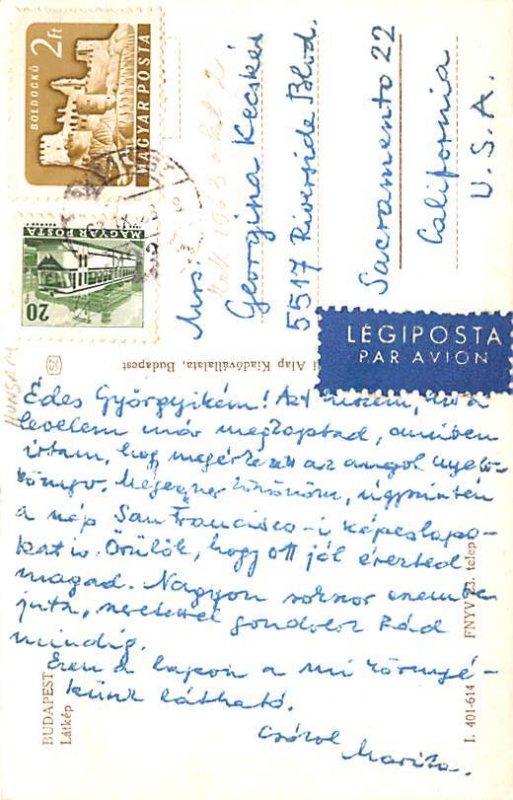 2Ft
BOLDOGKŐ
MAGYAR POSTA
MAGYAR POSTA
20
Mrs.
Georgina Kecskés
5517 Riverside Blvd.
Sacramento 22
California
U. S. A.
LÉGIPOSTA
PAR AVION
Alap Kiadóvállalata, Budapest
HUNGARY
Édes Györgyikém! Azt hiszem, hogy a
levelem már megkaptad, amiben
írtam, hogy megérkezett az angol nyelv-
könyv. Mégegyszer köszönöm, úgyszintén
a szép San Francisco-i képeslapo-
kat is. Örülök, hogy ott jól érezted
magad. Nagyon sokszor eszembe
jutsz, szeretettel gondolok Rád
mindig.
Ezen a lapon a mi környé-
künk látható.
Csókol
Marita.
BUDAPEST
Látkép
I. 401-614
FNYV 23. telep